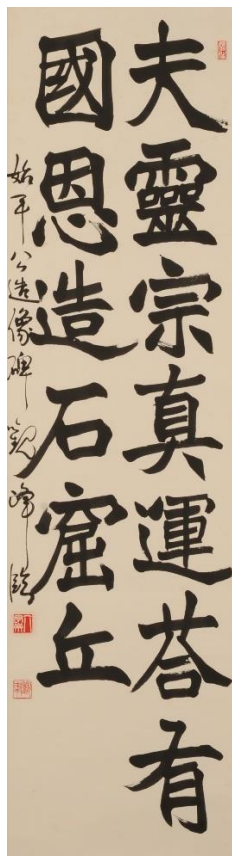 夫靈宗真運荅有
國恩造石窟丘
始平公造像碑觀峰臨